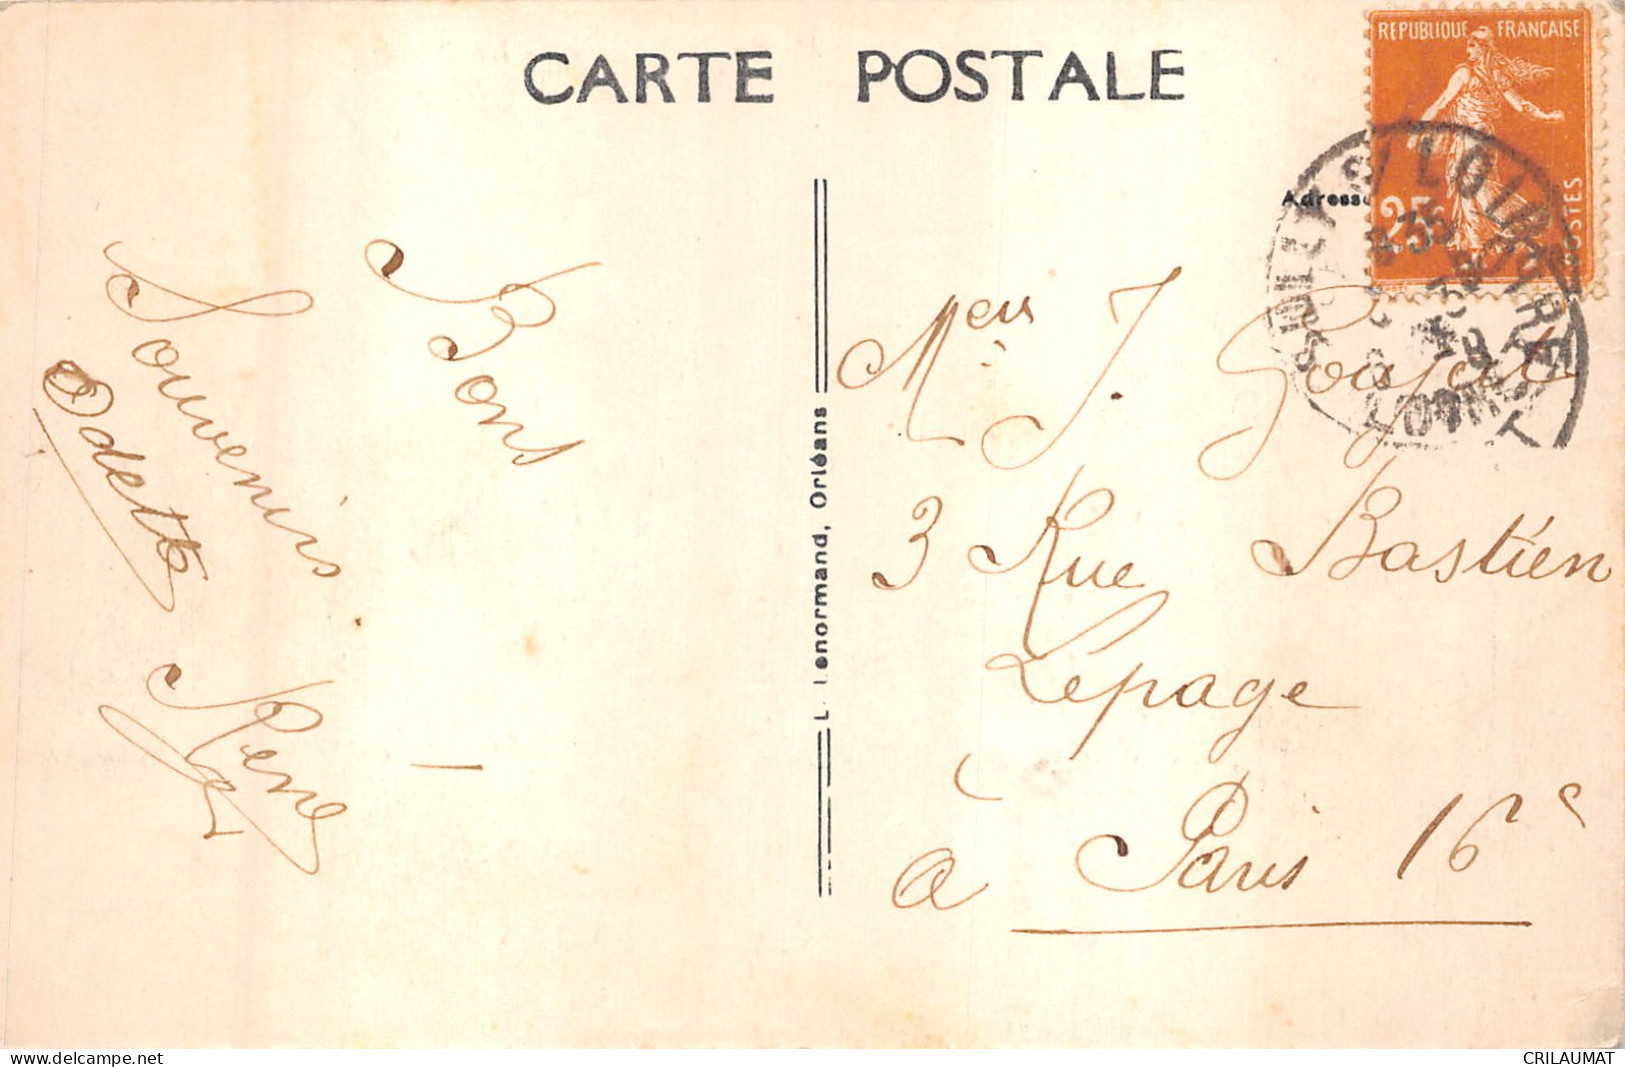 CARTE POSTALE
REPUBLIQUE FRANÇAISE
25c
POSTES
Adresse
SULLY S/ LOIRE
LOIRET
Bons
Souvenirs
Odette
René
L. Lenormand, Orléans
J.
3 Rue Bastien
Lepage
à Paris 16e
delcampe.net
CRILAUMAT